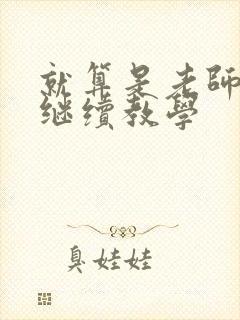 就算是老師
继續教學
臭娃娃